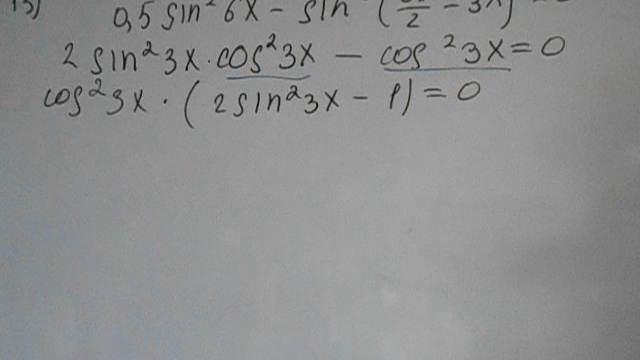 13) 0,5 sin² 6x - sin ( /2 - 3x)
2 sin² 3x · cos² 3x — cos² 3x = 0
cos² 3x · ( 2 sin² 3x - 1) = 0